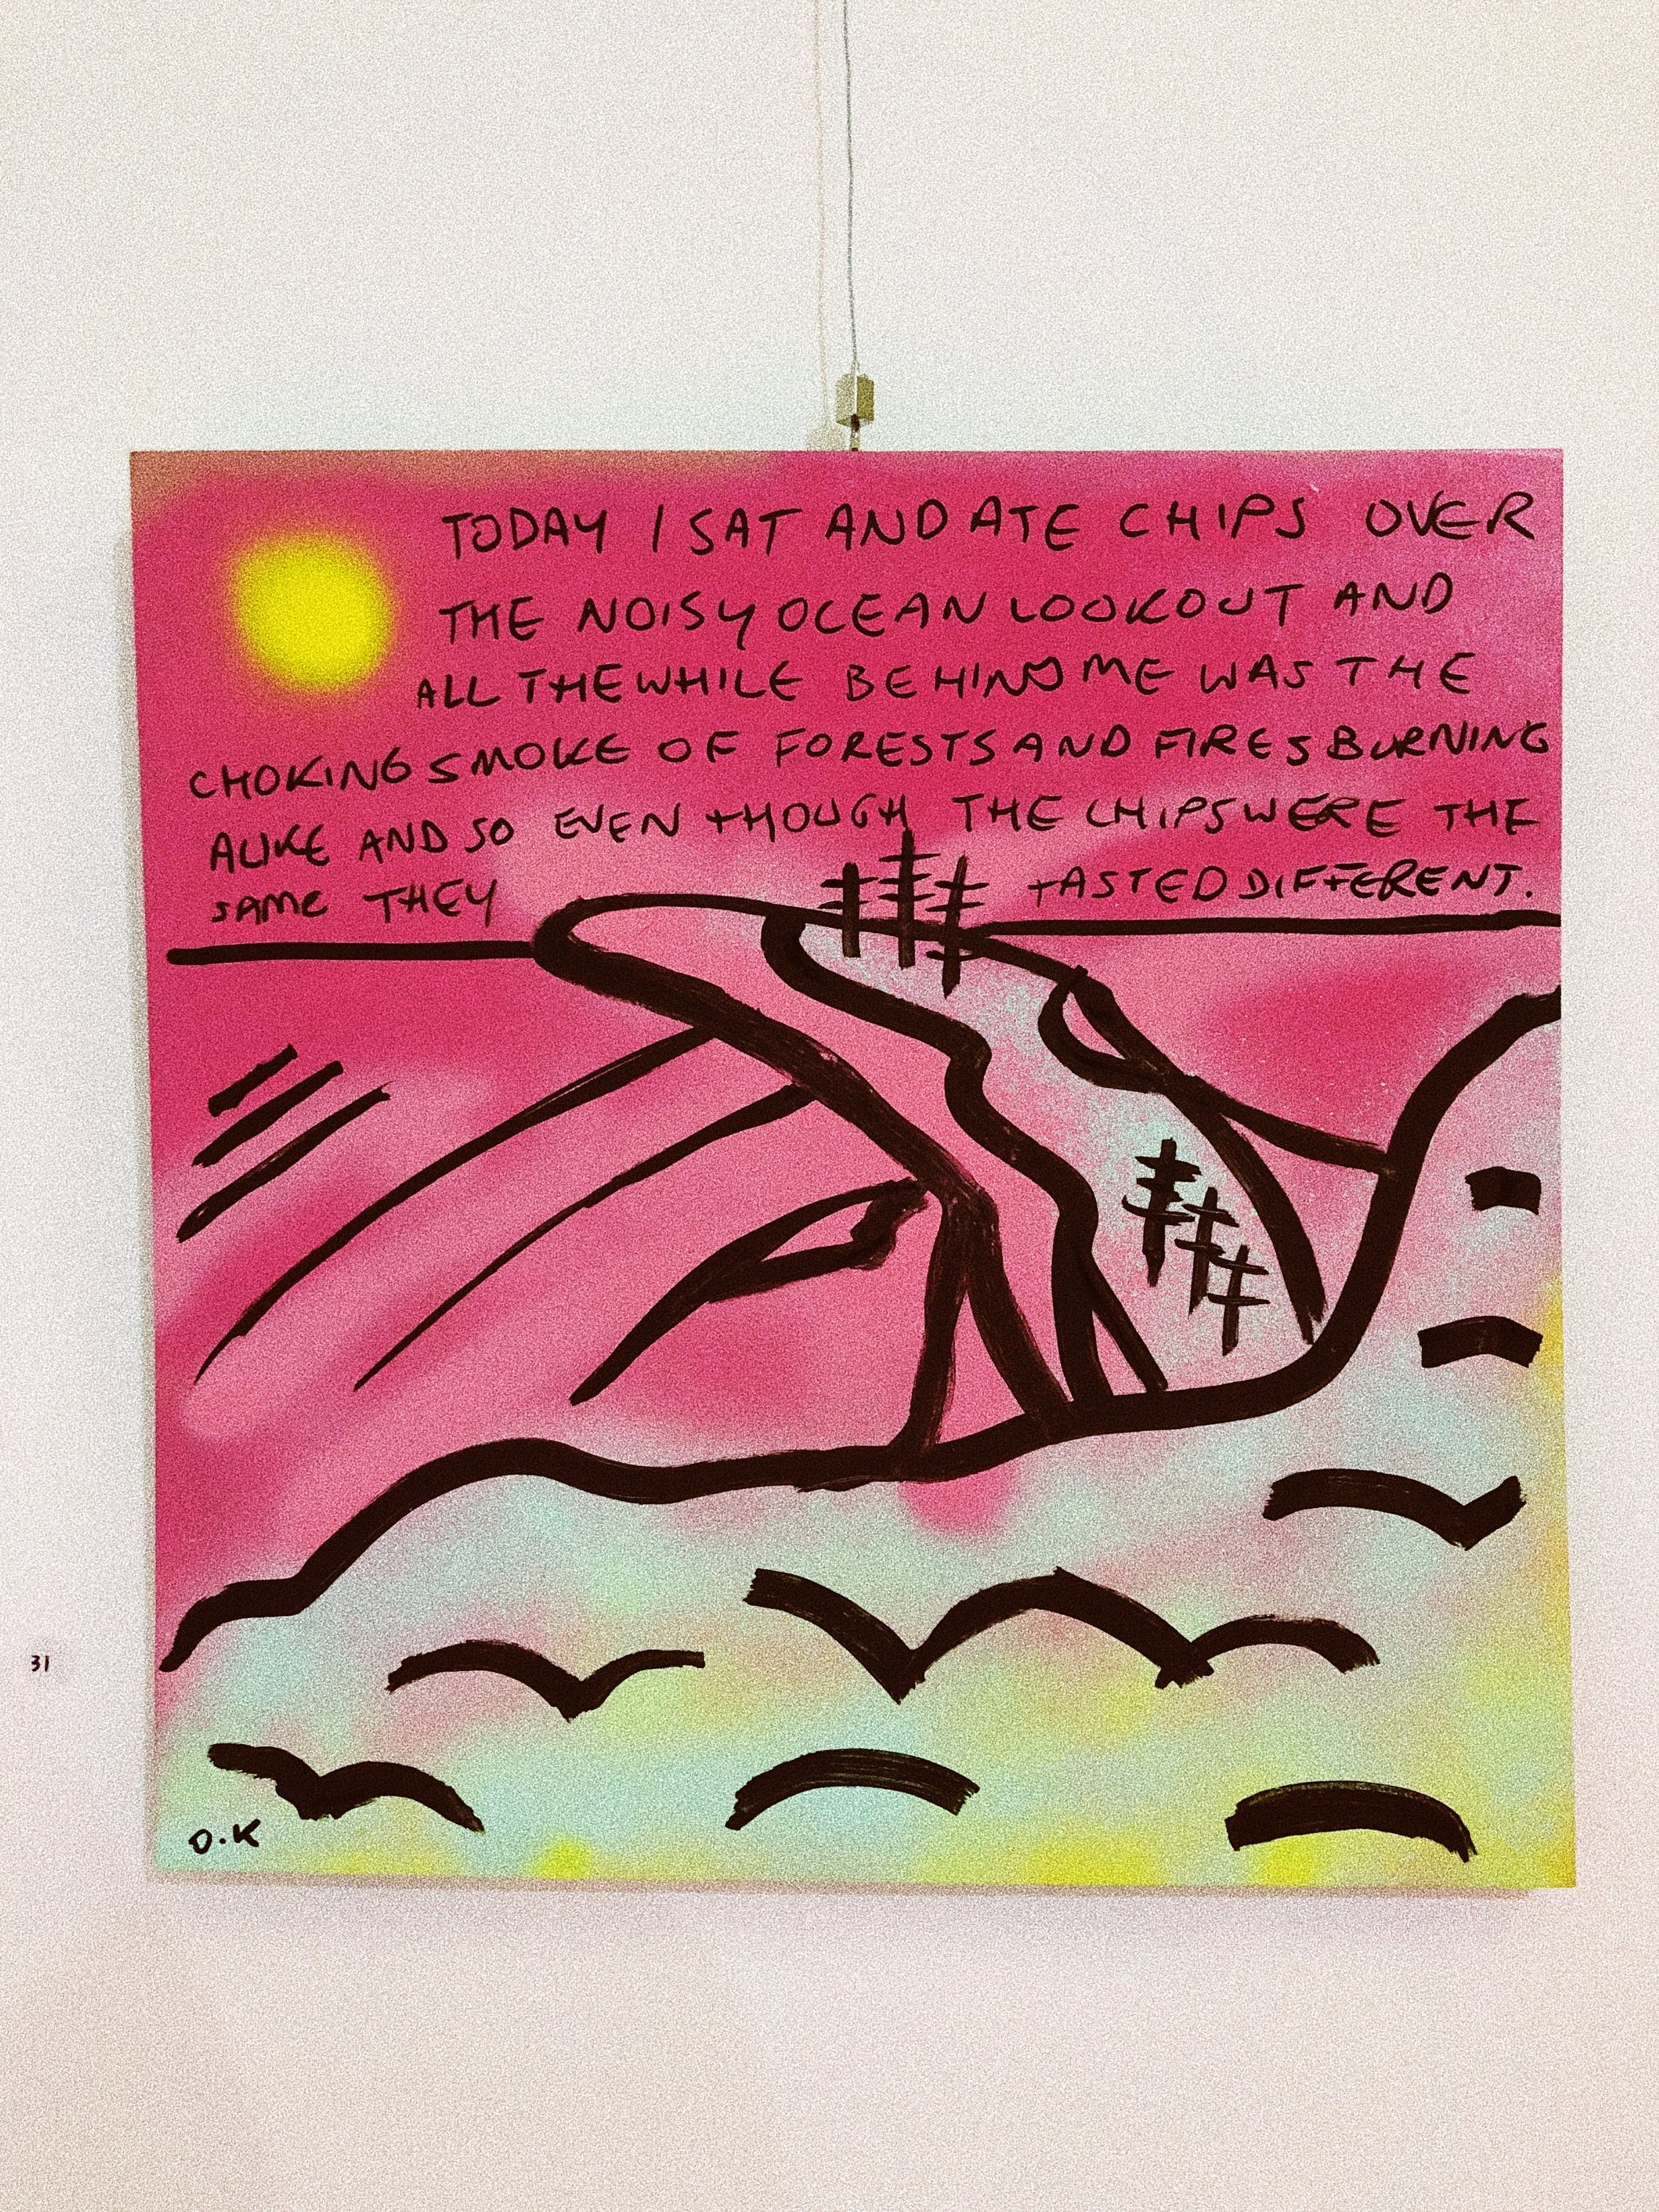 TODAY I SAT AND ATE CHIPS OVER
THE NOISY OCEAN LOOKOUT AND
ALL THE WHILE BEHIND ME WAS THE
CHOKING SMOKE OF FORESTS AND FIRES BURNING
ALIKE AND SO EVEN THOUGH THE CHIPS WERE THE
SAME THEY TASTED DIFFERENT.
31
O.K